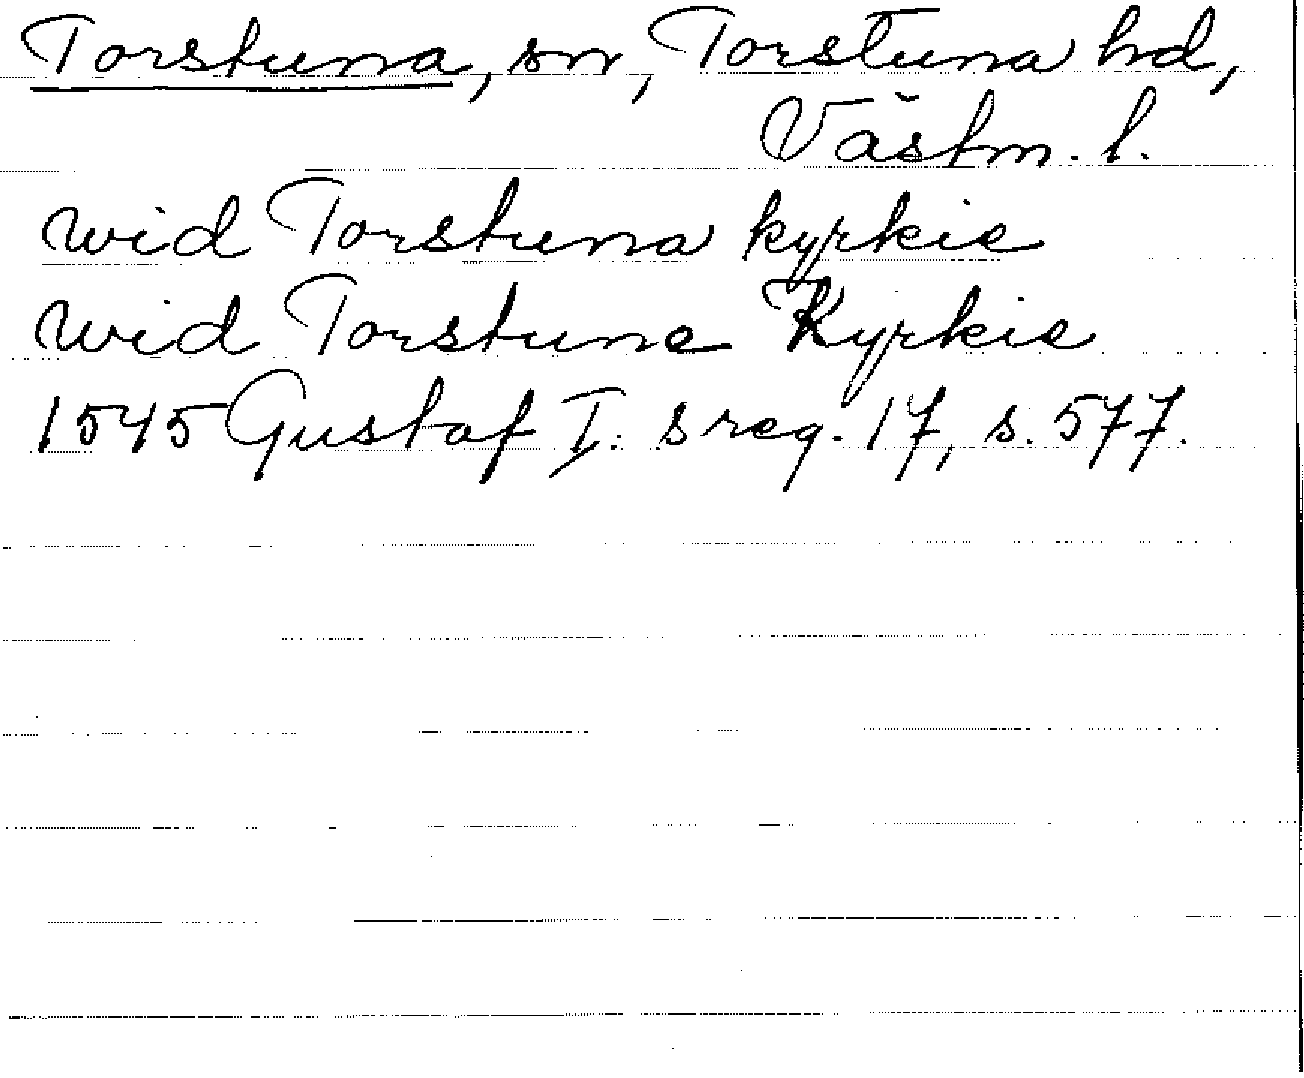 Torstuna, sn, Torstuna hd,
Västm. l.
wid Torstuna kyrkie
wid Torstune Kyrkie
1545 Gustaf I. s reg. 17, s. 577.